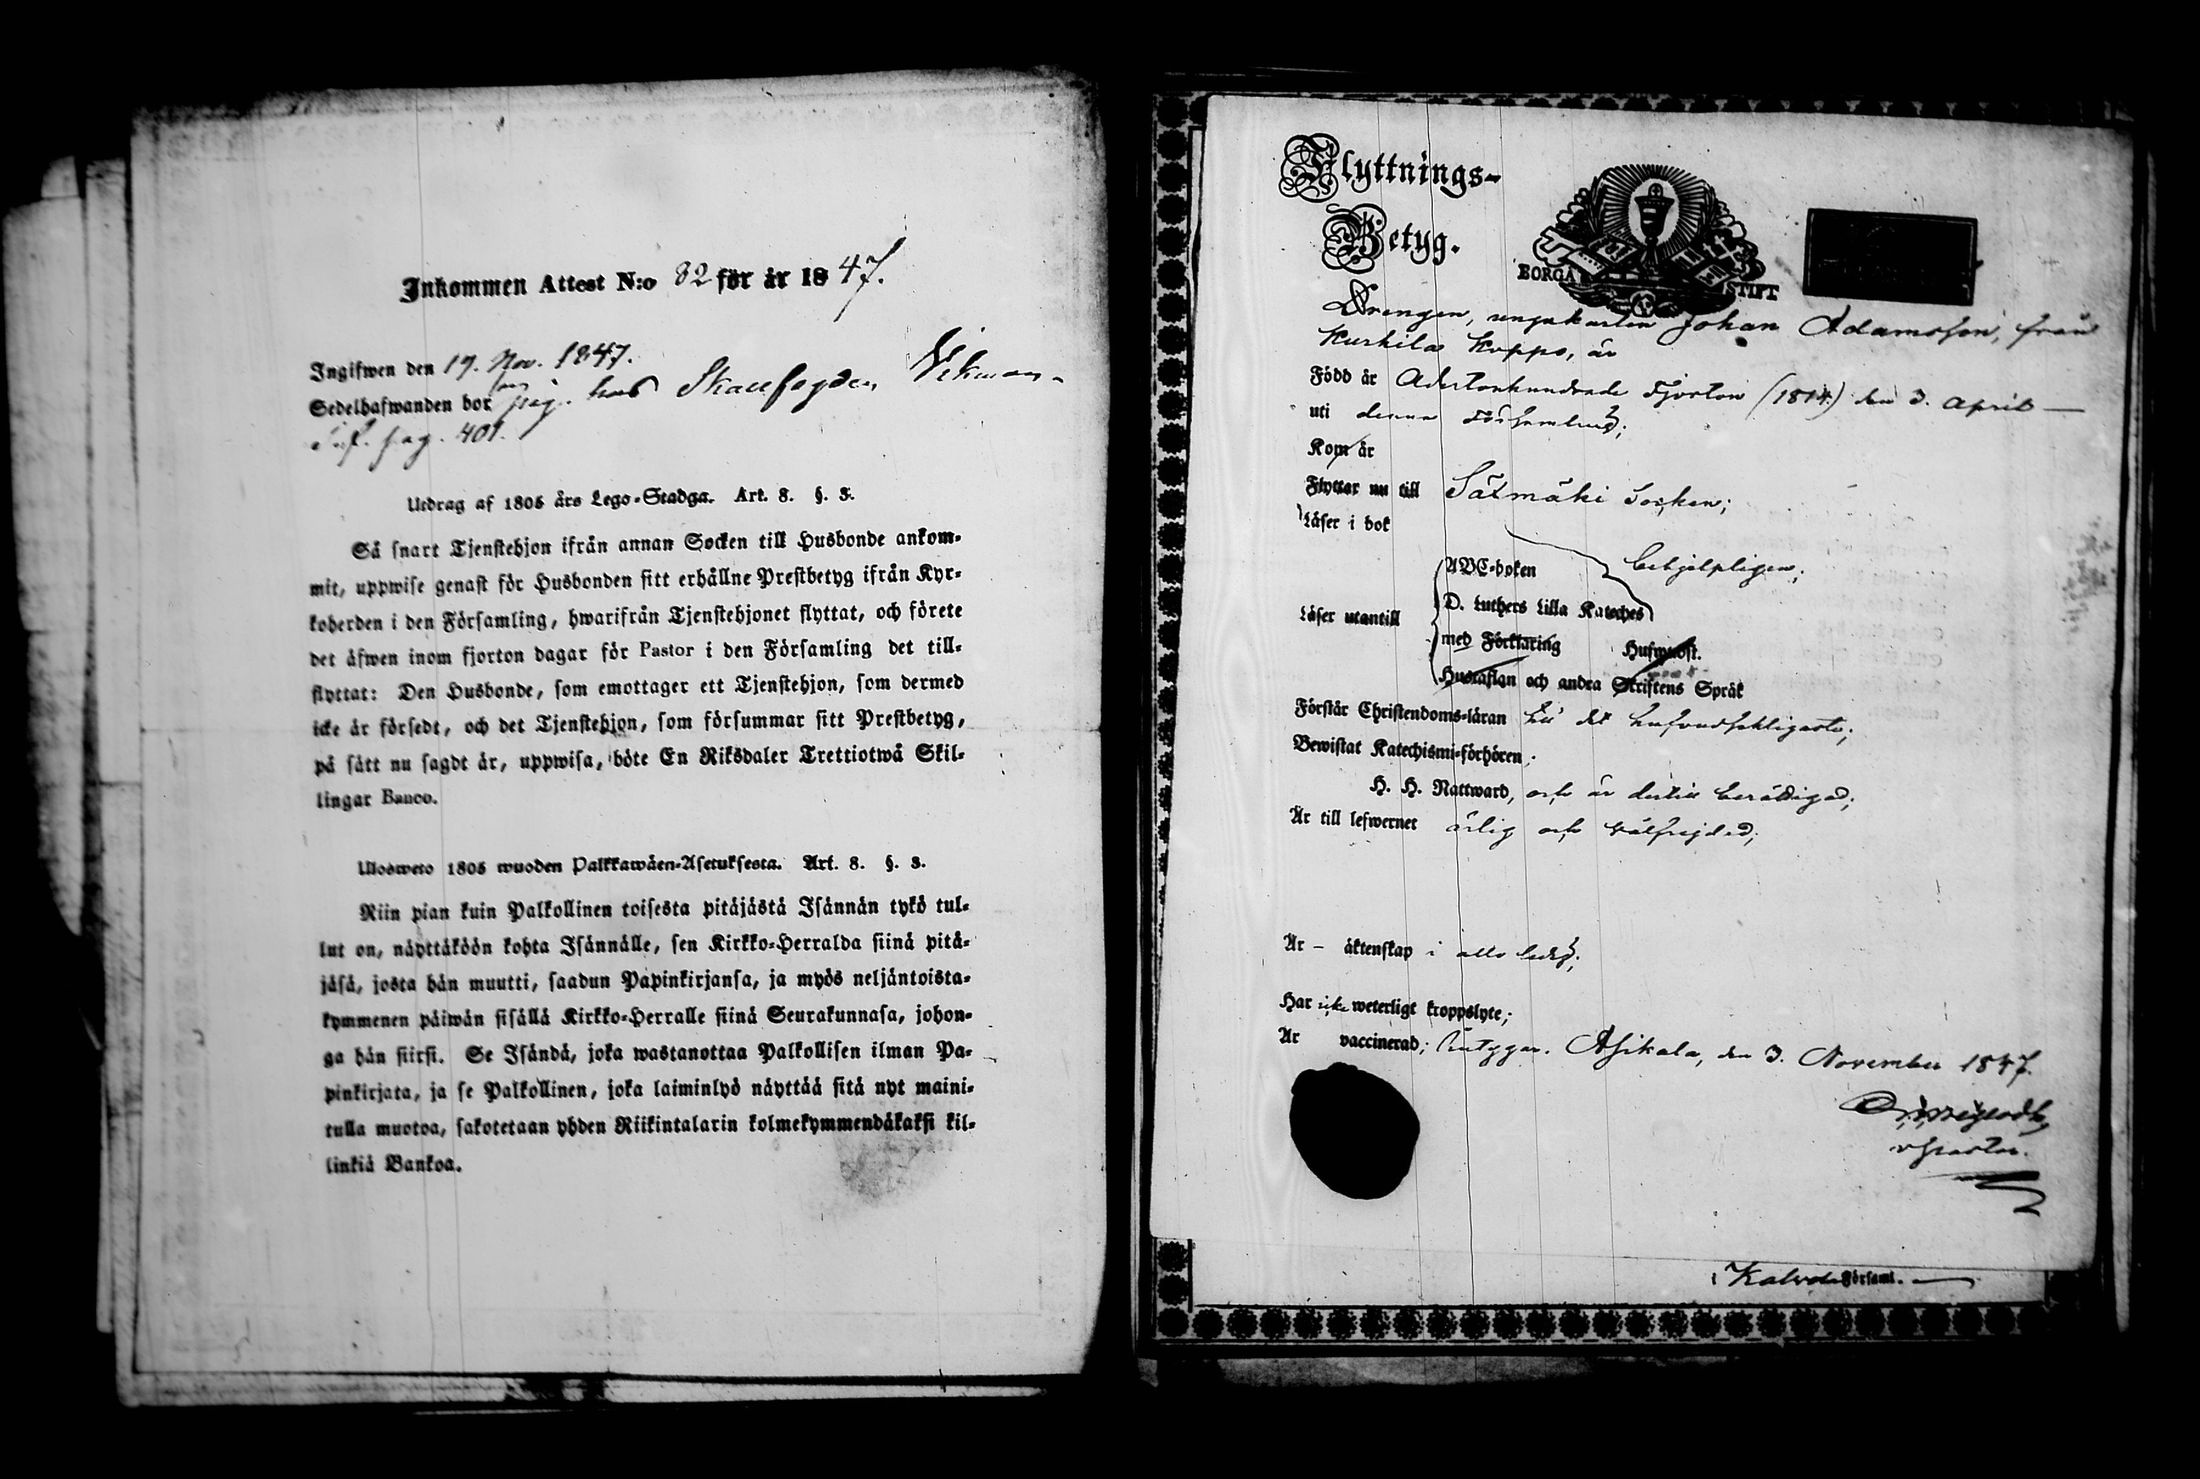 Inkommen Attest N:o 82 för år 1847.
Ingifwen den 19. Nov. 1847.
Sedelhafwanden bor hos Skallfogden Vikman
pag. 401.
Utdrag af 1805 års Lego-Stadga. Art. 8. §. 3.
Så snart Tjenstehjon ifrån annan Socken till Husbonde ankom-
mit, uppwise genast för Husbonden sitt erhållne Prestbetyg ifrån Kyr-
koherden i den Församling, hwarifrån Tjenstehjonet flyttat, och förete
det åfwen inom fjorton dagar för Pastor i den Församling det till-
flyttat: Den Husbonde, som emottager ett Tjenstehjon, som dermed
icke år försedt, och det Tjenstehjon, som försummar sitt Prestbetyg,
på sått nu sagdt år, uppwisa, böte En Riksdaler Trettiotwå Skil-
lingar Banco.
Uloswero 1805 wuoden Palkkawåen-Asetuksesta. Art. 8. §. 3.
Niin pian kuin Palkollinen toisesta pitåjåstå Isånnån tykö tul-
lut on, nåyttåköön kohta Isånnålle, sen Kirkko-Herralda siinå pitå-
jåså, josta hån muutti, saadun Papinkirjansa, ja myös neljåntoista-
kymmenen påiwån sisållå Kirkko-Herralle siinå Seurakunnasa, johon-
ga hån siirsi. Se Isåndå, joka wastanottaa Palkollisen ilman Pa-
pinkirjata, ja se Palkollinen, joka laiminlyö nåyttåå sitå nyt maini-
tulla muotoa, sakotetaan yhden Riikintalarin kolmekymmendåkaksi kil-
linkiå Bankoa.
Flyttnings-
Betyg.
BORGÅ STIFT
Drengen, ungkarlen Johan Adamsson, från
Kurhila, är
Född år Adertonhundrade Fjorton (1814) den 3. April
uti denna Församling;
Kom år
Flyttar nu till Sääxmäki Socken;
Läser i bok
ABC-boken behjelpligen;
D. Luthers Lilla Kateches
Läser utantill
med Förklaring Hufwudst.
Hustaflan och andra Skriftens Språk
Förstår Christendoms-läran till det hufvudsakligaste;
Bewistat Katechismi-förhören
H. H. Nattward, och är dertill berättigad;
Är till lefwernet ärlig och välfrejdad;
Är äktenskap i allo ledig;
Har icke weterligt kroppslyte;
Är vaccinerad; intygar. Asikala, den 3. November 1847.
v Pastor.
Kalvola Församl.